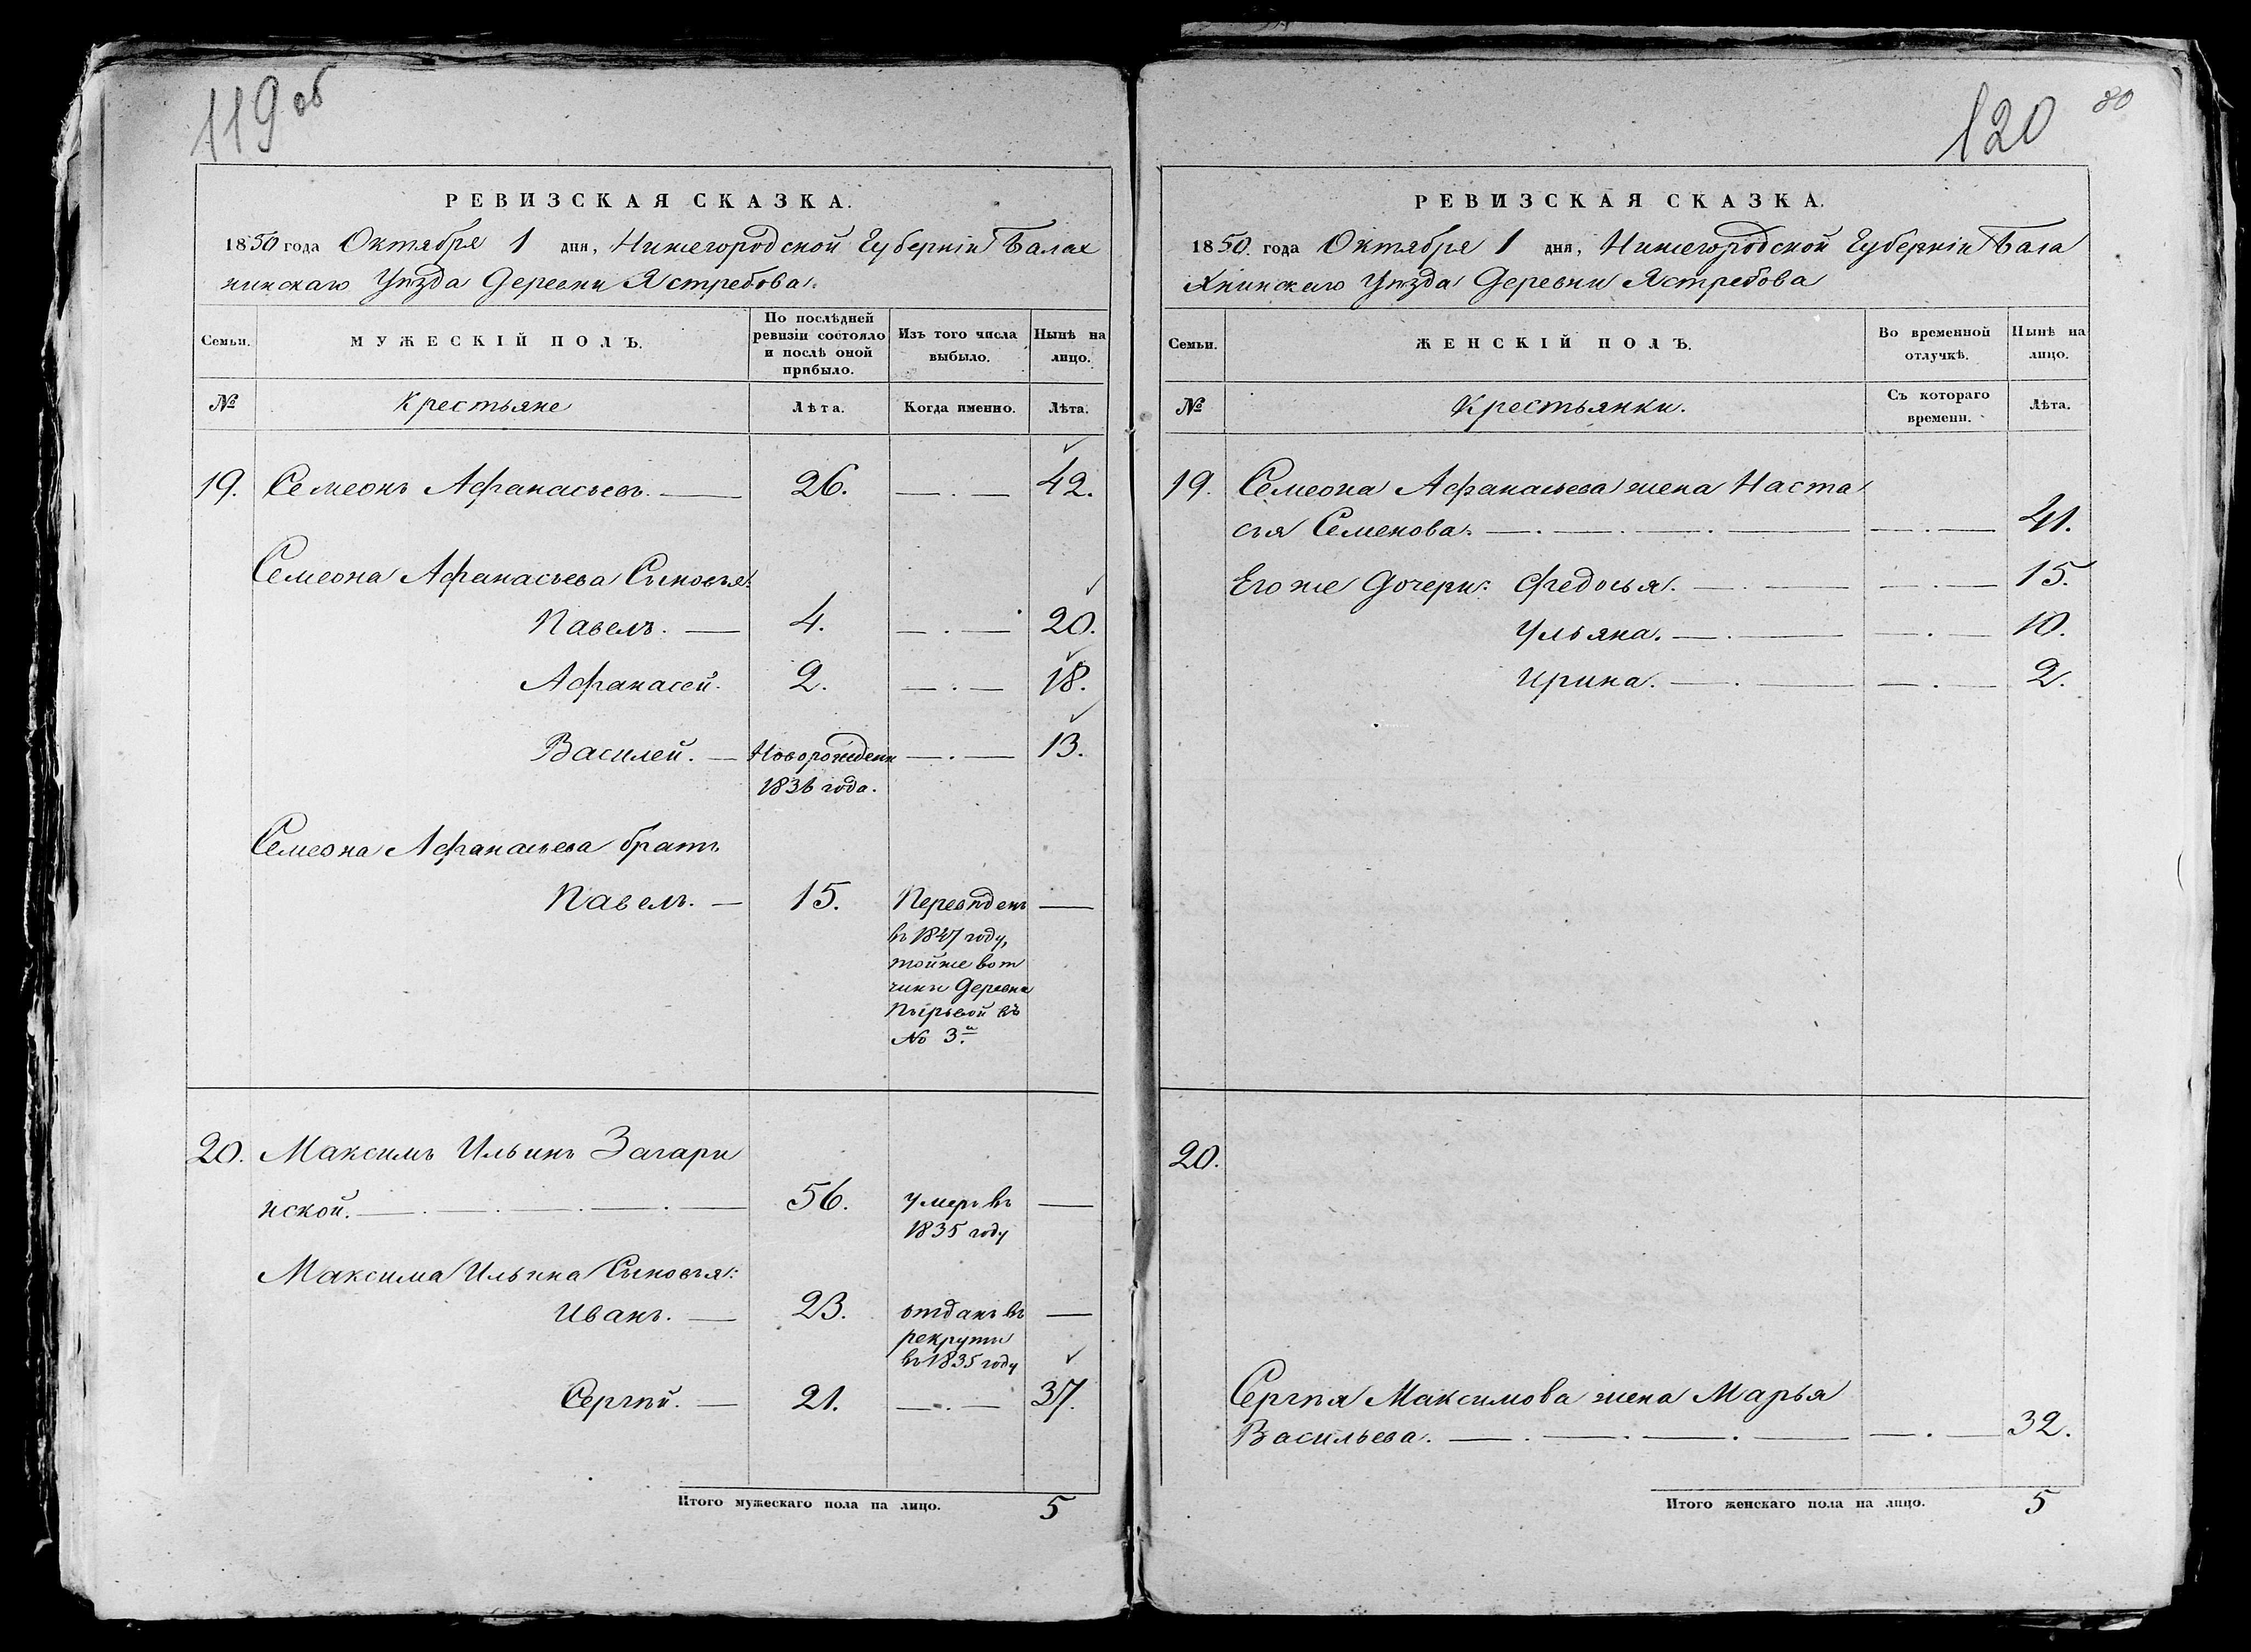 119 об
РЕВИЗСКАЯ СКАЗКА.
1850 года Октября 1 дня, Нижегородской Губерніи Балах
нинскаго Уѣзда Деревни Ястребова.
Семьи.
МУЖЕСКІЙ ПОЛЪ.
По послѣдней
ревизіи состояло
и послѣ оной
прибыло.
Изъ того числа
выбыло.
Нынѣ на
лицо.
№
Крестьяне
Лѣта.
Когда именно.
Лѣта.
19. Семеонъ Афанасьевъ. 26. 42.
Семеона Афанасьева Сыновья:
Павелъ. 4. 20.
Афанасей. 2. 18.
Василей. Новорожденъ 13.
1836 года.
Семеона Афанасьева братъ
Павелъ. 15. Переведенъ
въ 1847 году,
тойже вот
чины Деревни
Пырьевой въ
№ 3.й
20. Максимъ Ильинъ Загари
нской. 56. умеръ въ
1835 году
Максима Ильина Сыновья:
Иванъ. 23. отданъ въ
рекруты
въ 1835 году
Сергѣй. 21. 37.
Итого мужескаго пола на лицо. 5
120 80
РЕВИЗСКАЯ СКАЗКА.
1850. года Октября 1 дня, Нижегородской Губерніи Бала
хнинскаго Уѣзда Деревни Ястребова
Семьи.
ЖЕНСКІЙ ПОЛЪ.
Во временной
отлучкѣ.
Нынѣ на
лицо.
№
Крестьянки.
Съ котораго
времени.
Лѣта.
19. Семеона Афанасьева жена Наста
сья Семенова. 41.
Его же Дочери: Федосья. 15.
Ульяна. 10.
Ирина. 2.
20.
Сергѣя Максимова жена Марья
Васильева. 32.
Итого женскаго пола на лицо. 5